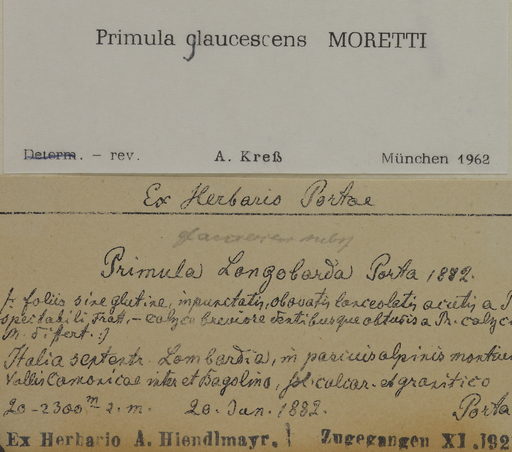 Primula glaucescens MORETTI
Determ. – rev. A. Kreß München 1962
Ex Herbario Portae
glaucescens subsp
Primula Longobarda Porta 1882.
/: foliis sine glutine, impunctatis, obovatis lanceolatis acutis a P
spectabili Tratt, – calyce breviore dentibusque obtusis a Pr. calyci
m. differt :/
Italia septentr. Lombardia, in pascuis alpinis montan
Vallis Camonicae inter et Bagolino, sol. calcar. et granitico
20-2300 m s. m. 20. Jun. 1882. Porta
Ex Herbario A. Hiendlmayr. ! Zugegangen XI.192